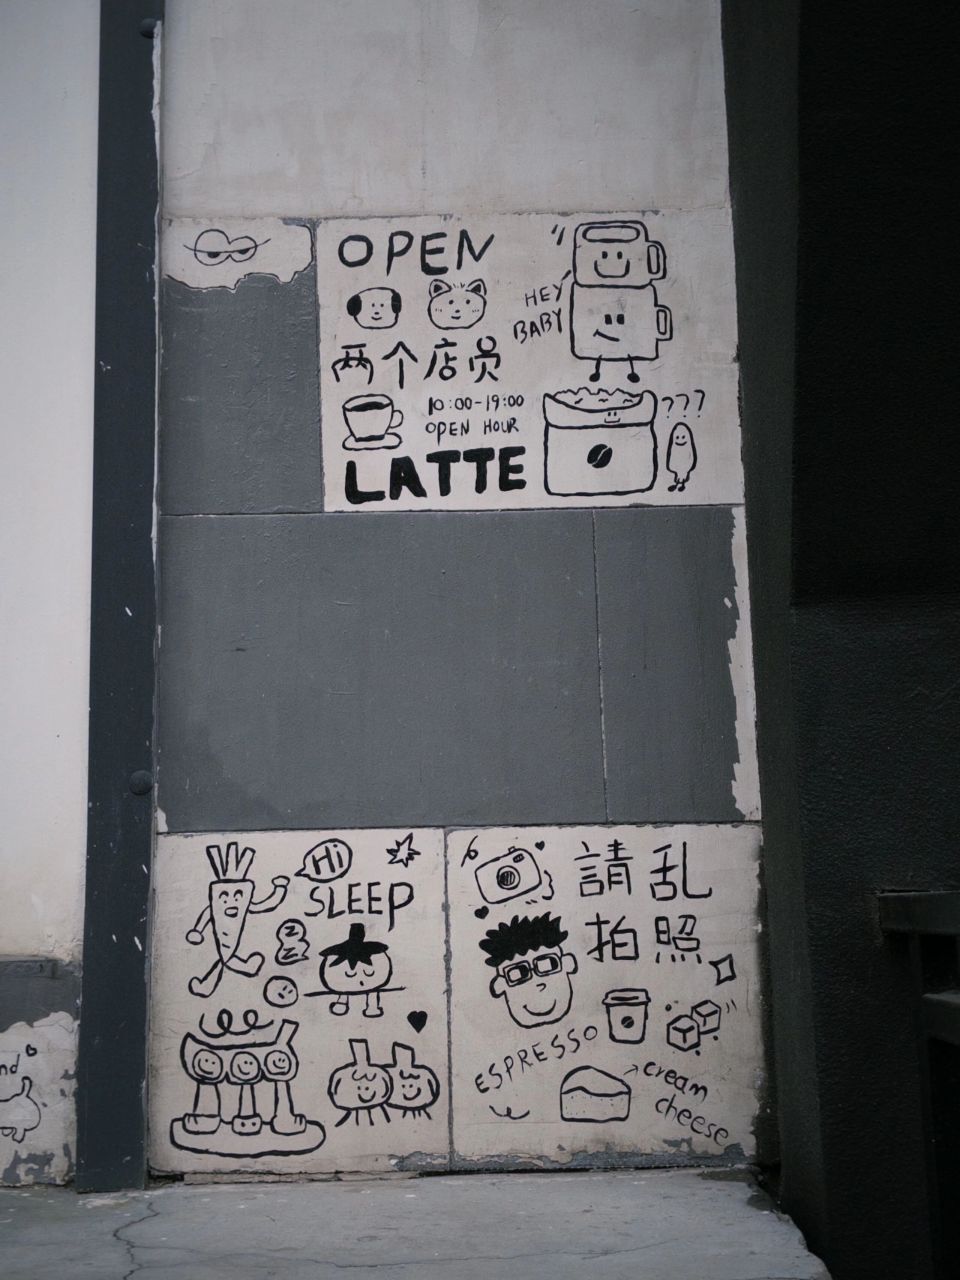 OPEN
HEY
BABY
两个店员
10:00-19:00
OPEN HOUR
???
LATTE
Hi
SLEEP
Z
Z
請乱
拍照
ESPRESSO
cream
cheese